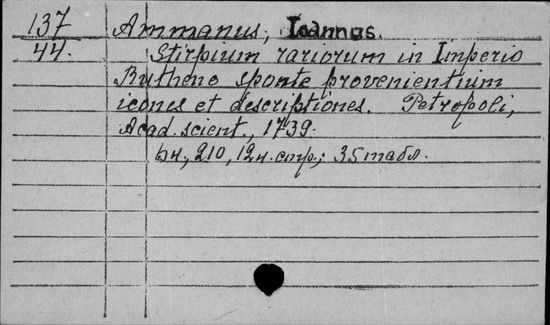 137 Ammanus, Ioannus.
44. Stirpium rariorum in Imperio
Rutheno sponte provenientium
icones et descriptiones. Petropoli,
Acad. scient., 1739.
210, 12 н. стр.; 35 табл.